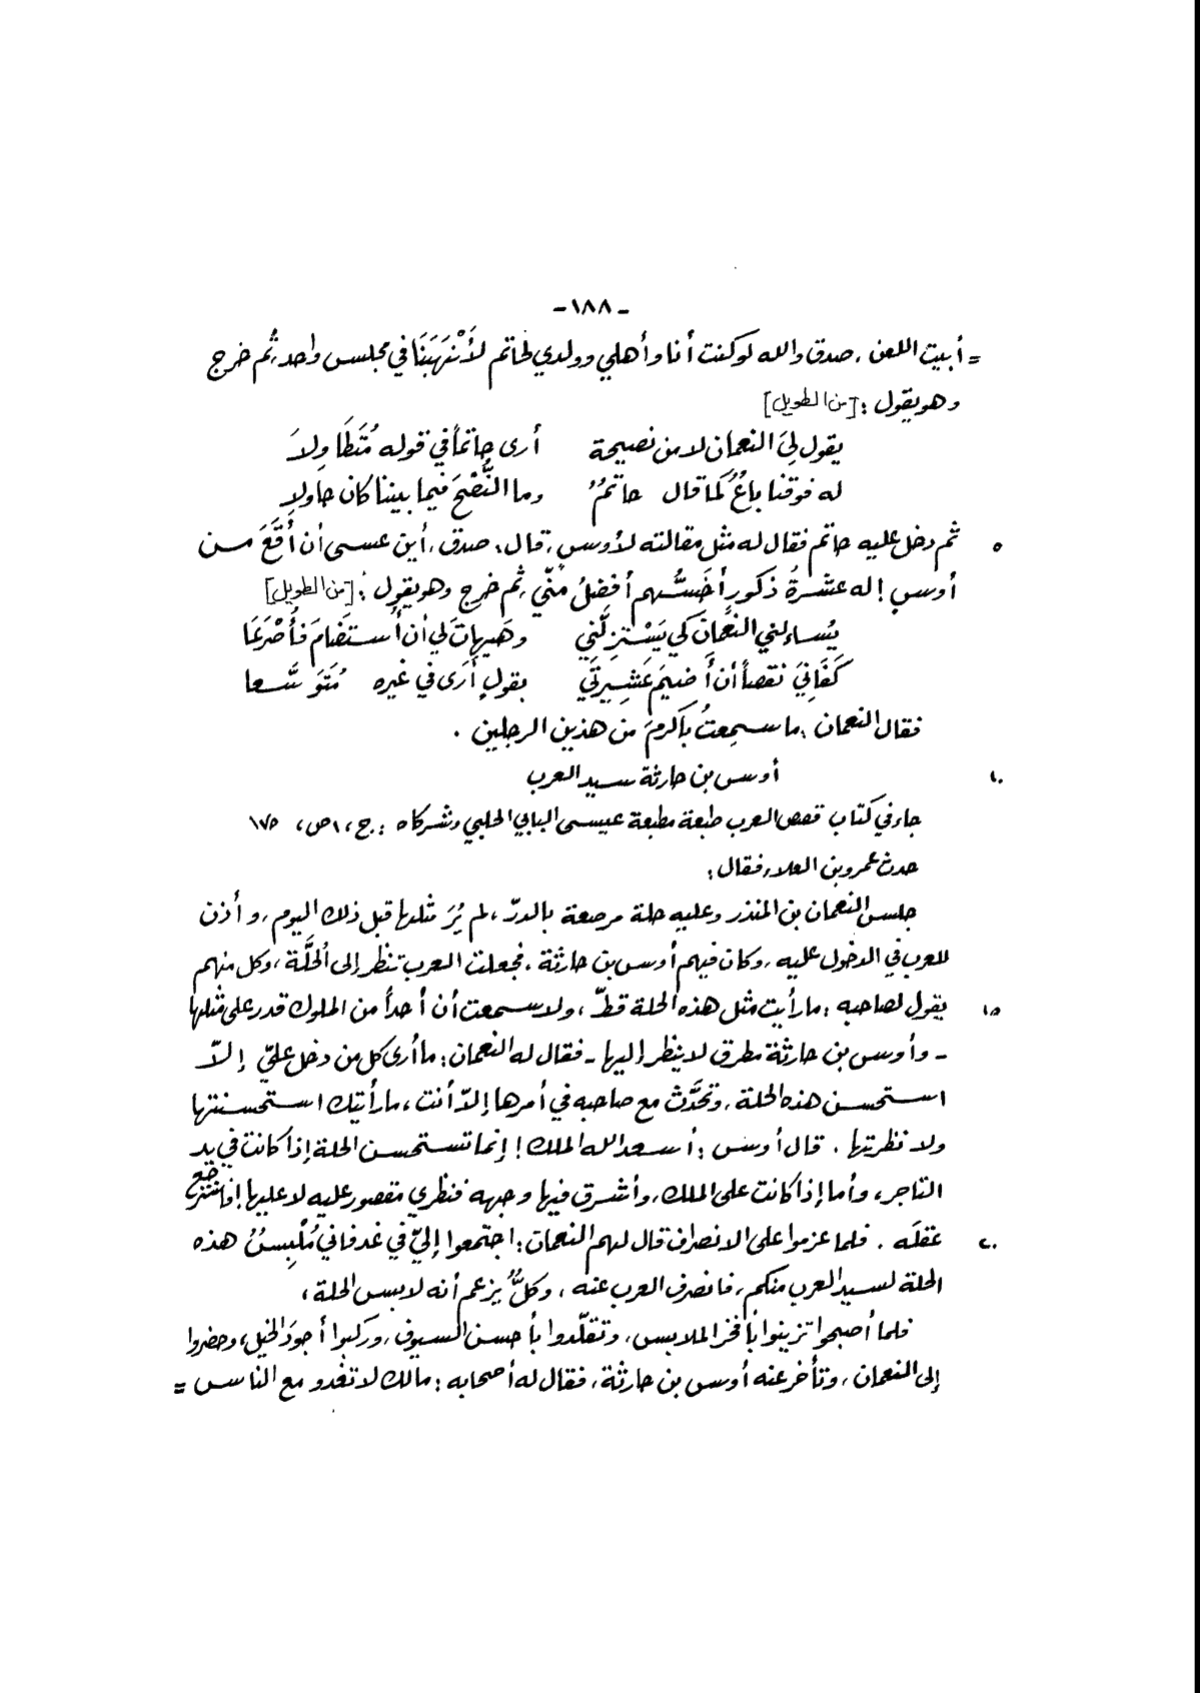 -١٨٨-
= أبيت اللعن، صدق والله لو كنت أنا وأهلي وولدي لحاتم لأَنْهَبَنَا في مجلس واحد، ثم خرج
وهو يقول: [من الطويل]
يقول لِيَ النعمان لا من نصيحة    أرى حاتماً في قوله مُتَطَاوِلاَ
له فوقنا باعٌ كما قال حاتمٌ    وما النُّصْحَ فيما بيننا كان حاولا
٥ ثم دخل عليه حاتم فقال له مثل مقالته لأوس، قال: صدق، أين عسى أن أَقَعَ من
أوسٍ! له عشرةُ ذكورٍ أخَسُّهم أفضلُ منّي، ثم خرج وهو يقول: [من الطويل]
يُسائلني النعمان كي يَسْتزِلَّني    وهَيهاتَ لي أن أُستضامَ فأُصْرَعَا
كَفَانِيَ نقصاً أن أَضيمَ عَشِيرتي    بقولٍ أرَى في غيره مُتَوَسَّعا
فقال النعمان: ما سمِعتُ بأكرمَ من هذين الرجلين.
١٠ أوس بن حارثة سيد العرب
جاء في كتاب قصص العرب طبعة مطبعة عيسى البابي الحلبي وشركاه: ج، ١ ص، ١٧٥
حدث عمرو بن العلاء فقال:
جلس النعمان بن المنذر وعليه حلة مرصعة بالدرّ، لم يُرَ مثلها قبل ذلك اليوم، وأذن
للعرب في الدخول عليه، وكان فيهم أوس بن حارثة، فجعلت العرب تنظر إلى الحُلَّة، وكل منهم
١٥ يقول لصاحبه: ما رأيت مثل هذه الحلة قطّ، ولا سمعت أن أحداً من الملوك قدر على مثلها
- وأوس بن حارثة مطرق لا ينظر إليها - فقال له النعمان: ما أرى كل من دخل عليّ إلاّ
استحسن هذه الحلة، وتحَّدث مع صاحبه في أمرها إلاّ أنت، ما رأيتك استحسنتها
ولا نظرتها. قال أوس: أسعد الله الملك! إنما تستحسن الحلة إذا كانت في يد
التاجر، وأما إذا كانت على الملك، وأشرق فيها وجهه فنظري مقصور عليه لا عليها! فاسترجع
٢٠ عقله. فلما عزموا على الانصراف قال لهم النعمان: اجتمعوا إليّ في غد فاني مُلْبِسٌ هذه
الحلة لسيد العرب منكم، فانصرف العرب عنه، وكلٌّ يزعم أنه لابس الحلة،
فلما أصبحوا تزينوا بأفخر الملابس، وتقلّدوا بأحسن السيوف، وركبوا أجودَ الخيل، وحضروا
إلى النعمان، وتأخر عنه أوس بن حارثة، فقال له أصحابه: مالك لا تغدو مع الناس =